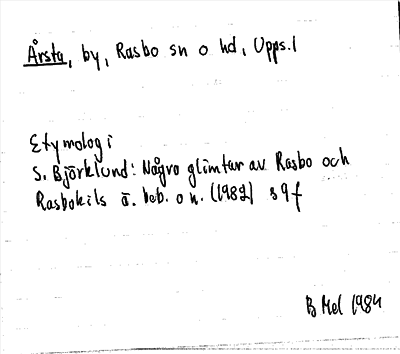 Årsta, by, Rasbo sn o hd, Upps.l
Etymologi
S. Björklund: Några glimtar av Rasbo och
Rasbokils ä. beb. o n. (1982) s 9 f
B Mel 1984